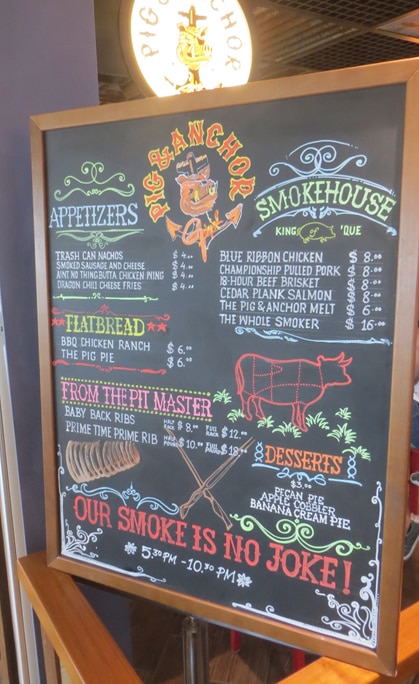 PIG & ANCHOR
PIG & ANCHOR
Guy's
APPETIZERS
TRASH CAN NACHOS $4.00
SMOKED SAUSAGE AND CHEESE $4.00
AINT NO THING BUTTA CHICKEN WING $4.00
DRAGON CHILI CHEESE FRIES $4.00
SMOKEHOUSE
KING of 'QUE
BLUE RIBBON CHICKEN $8.00
CHAMPIONSHIP PULLED PORK $8.00
18-HOUR BEEF BRISKET $8.00
CEDAR PLANK SALMON $8.00
THE PIG & ANCHOR MELT $6.00
THE WHOLE SMOKER $16.00
FLATBREAD
BBQ CHICKEN RANCH $6.00
THE PIG PIE $6.00
FROM THE PIT MASTER
BABY BACK RIBS HALF RACK $8.00 FULL RACK $12.00
PRIME TIME PRIME RIB HALF POUND $10.00 FULL POUND $18.00
DESSERTS
$3.00
PECAN PIE
APPLE COBBLER
BANANA CREAM PIE
OUR SMOKE IS NO JOKE!
5.30PM - 10.30PM